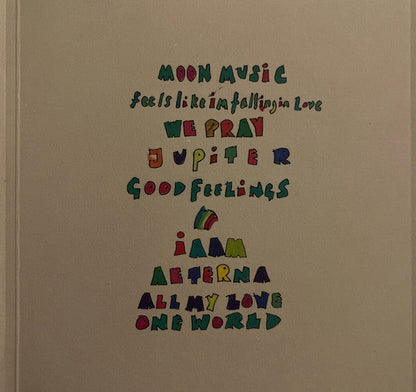 MOON MUSiC
feelslikeimfallinginLove
WE PRAY
JUPiTER
GOODfEELiNGS
🌈
iAAM
AETERNA
ALL MY LOVE
ONE WORLD